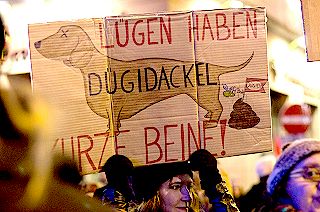 LÜGEN HABEN
DÜGIDACKEL
KURZE BEINE!